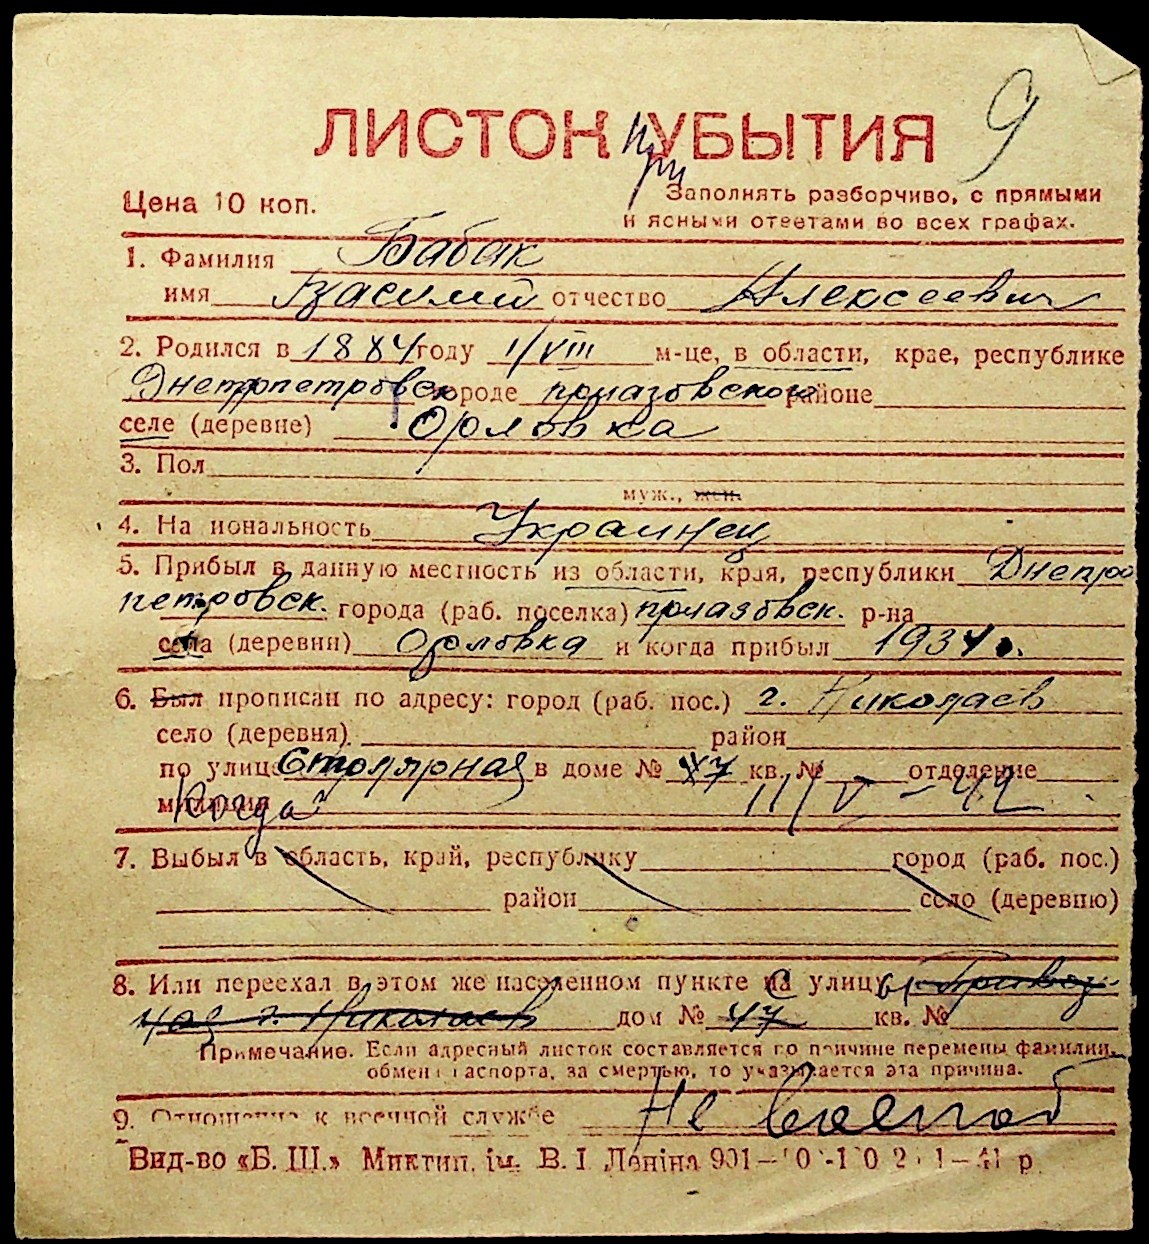 9
ЛИСТОК УБЫТИЯ
при
Цена 10 коп. Заполнять разборчиво, с прямыми
и ясными ответами во всех графах.
1. Фамилия Бабак
имя Василий отчество Алексеевич
2. Родился в 1884 году 1/VIII м-це, в области, крае, республике
Днепропетровск городе приазовском районе
селе (деревне) Орловка
3. Пол
муж., жен.
4. На иональность Украинец
5. Прибыл в данную местность из области, края, республики Днепро
петровск. города (раб. поселка) приазовск. р-на
села (деревни) Орловка и когда прибыл 1934 г.
6. Был прописан по адресу: город (раб. пос.) г. Николаев
село (деревня) район
по улице Столярная в доме № 47 кв. № отделение
милиции Когда 11/V – 42
7. Выбыл в область, край, республику город (раб. пос.)
район село (деревню)
8. Или переехал в этом же населенном пункте на улицу
г. Николаев дом № 47 кв. №
Примечание. Если адресный листок составляется по причине перемены фамилии,
обмен паспорта, за смертью, то указывается эта причина.
9. Отношение к военной службе Не военноб
Вид-во «Б. Ш.» Миктип. ім. В. І Леніна